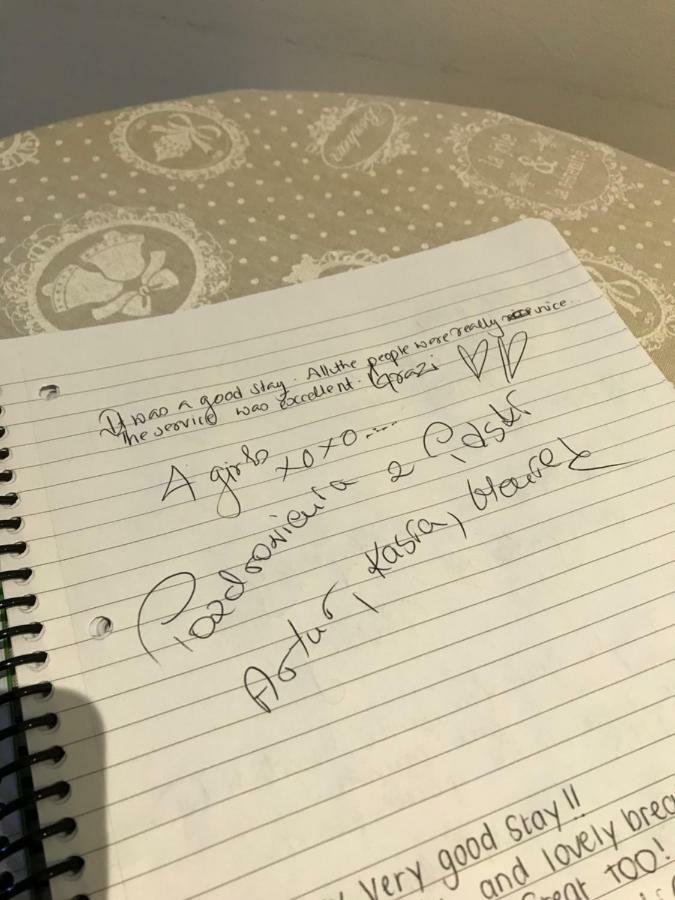 Bonheur
la joie
&
It was a good stay. All the people were really nice...
The service was excellent. Grazi
A girls xoxo....
Pozdrowienia z Polski
Artur, Kasia,
Very good stay!!
and lovely brea
reat TOO!